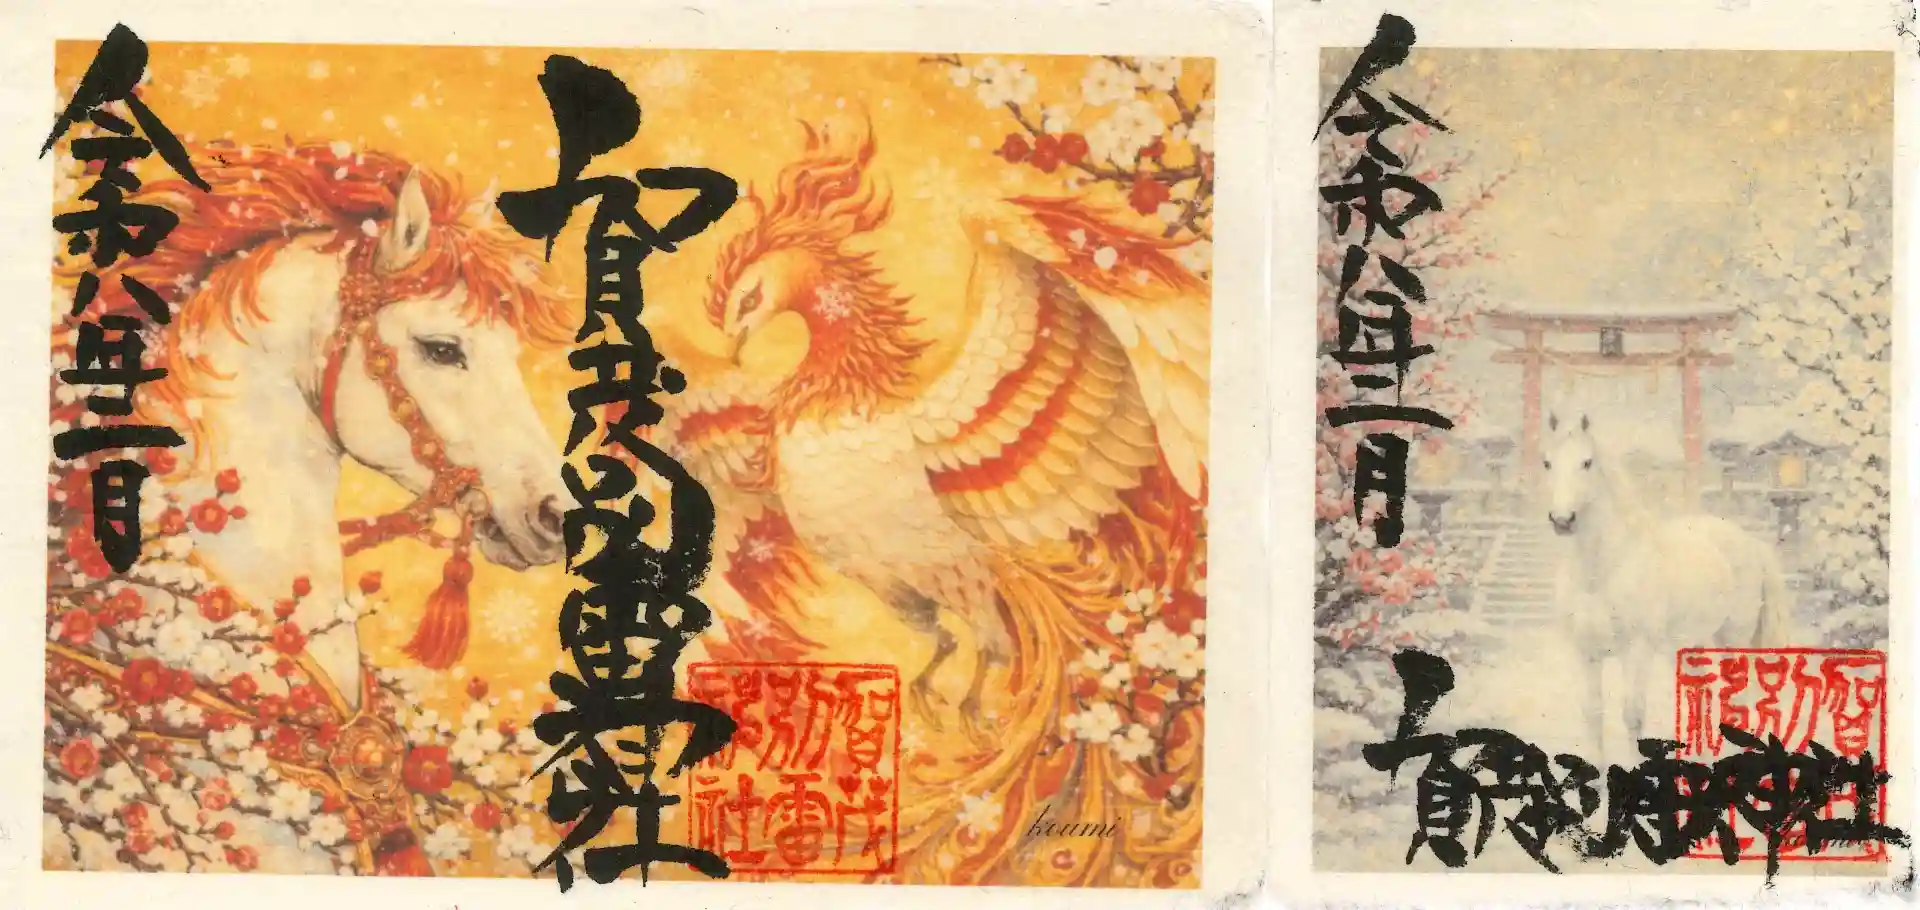 令和八年二月
賀茂別雷神社
賀茂
別雷
神社
koumi
令和八年二月
賀茂別雷神社